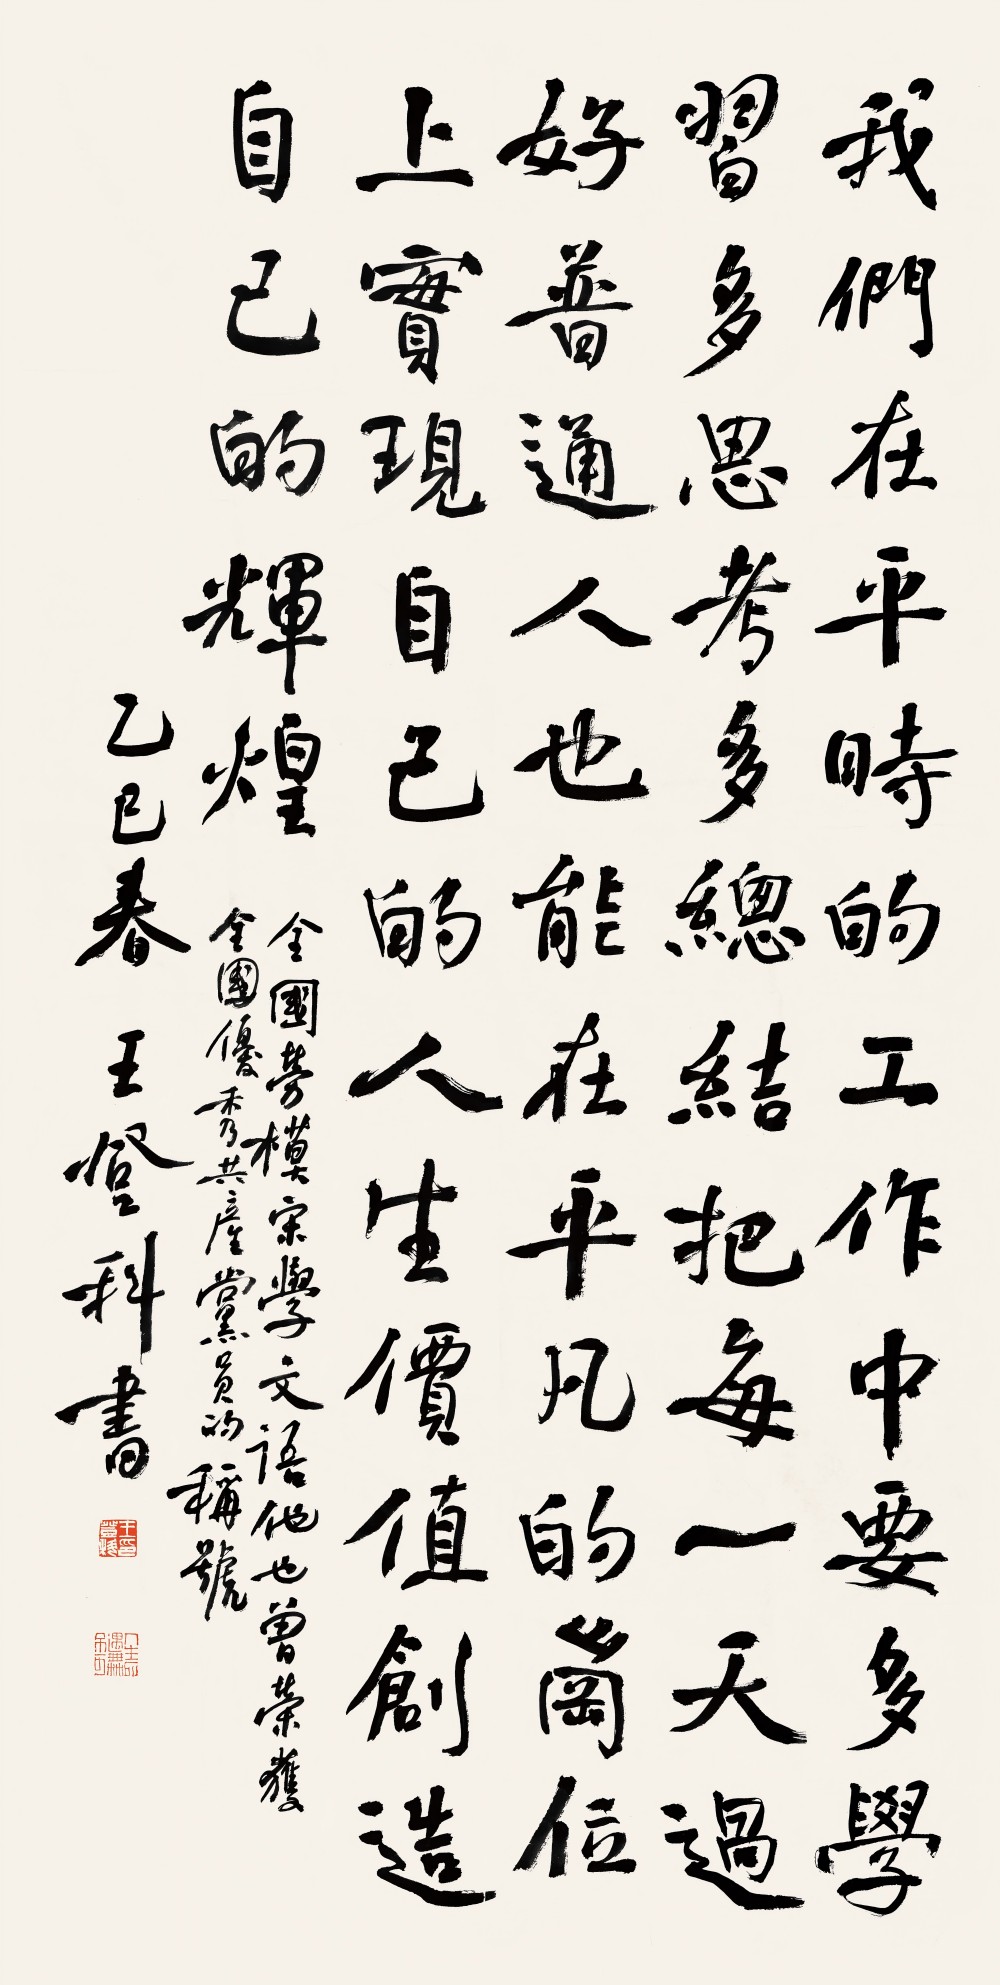 我們在平時的工作中要多學
習多思考多總結把每一天過
好普通人也能在平凡的崗位
上實現自己的人生價值創造
自己的輝煌
全國勞模宋學文語他也曾榮獲
全國優秀共產黨員的稱號
乙巳春王登科書